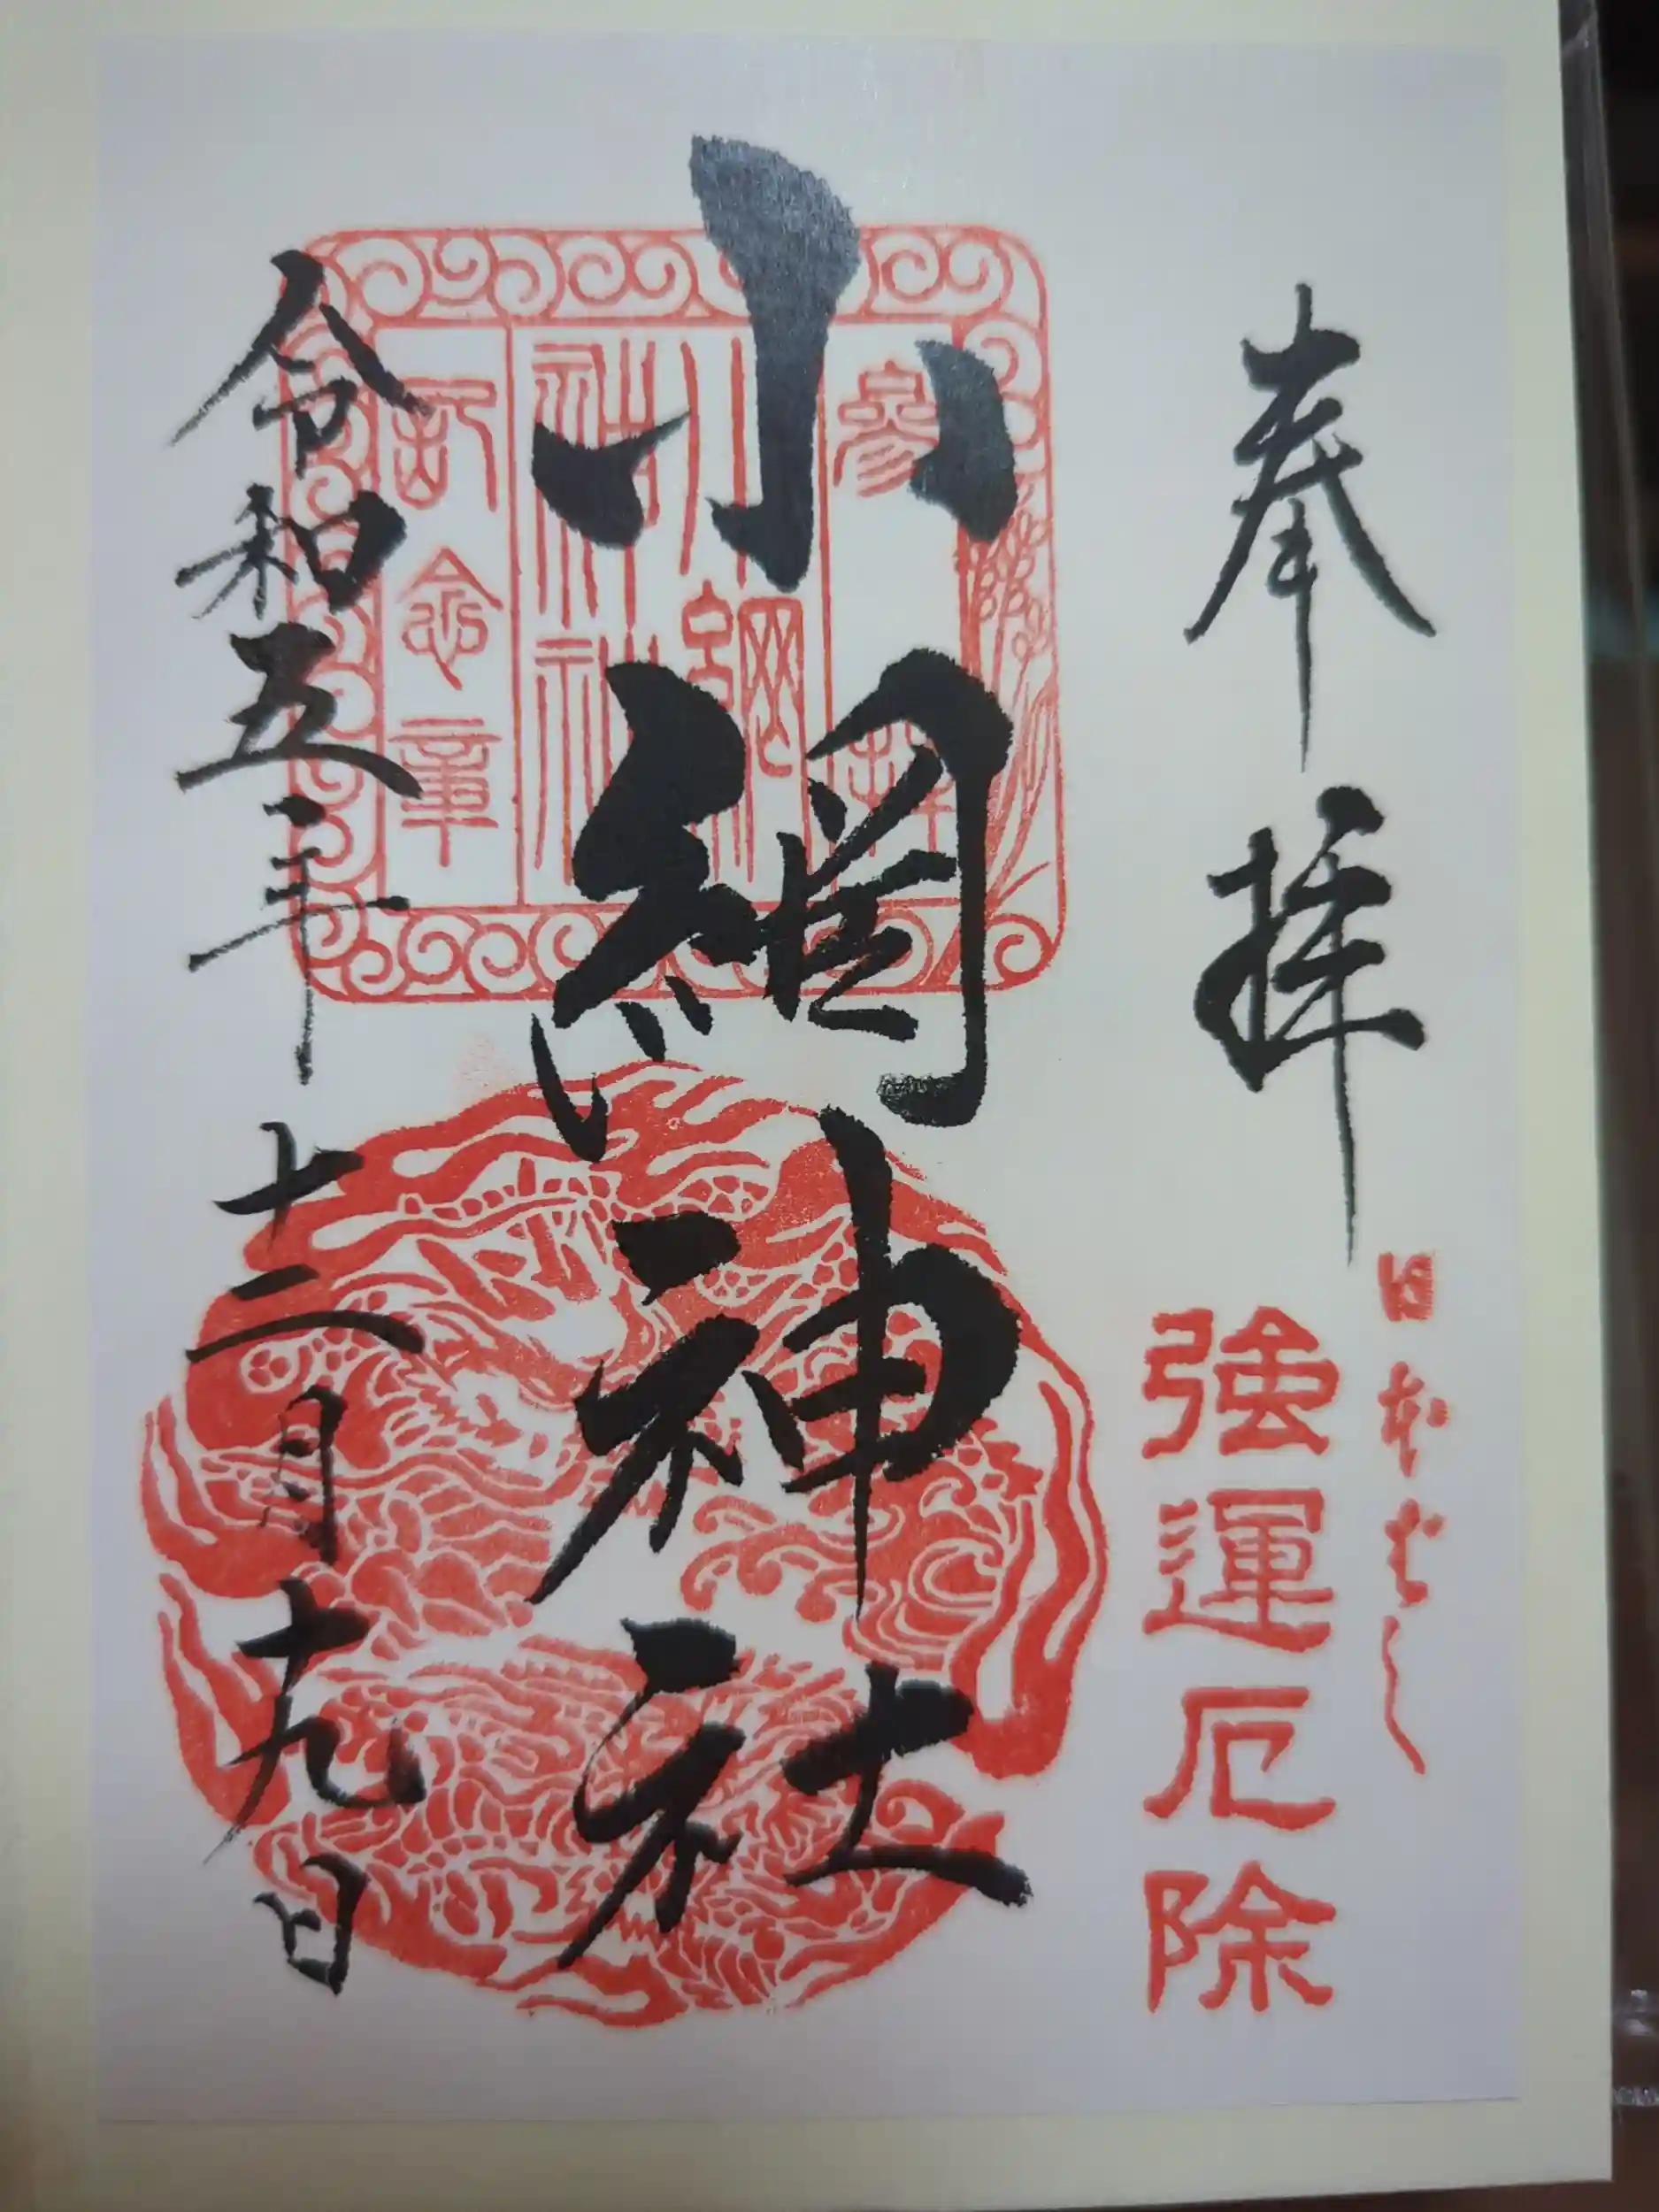 奉拝
日本ばし
強運厄除
小網神社
参拝
小網
神社
記念章
令和五年十二月十九日